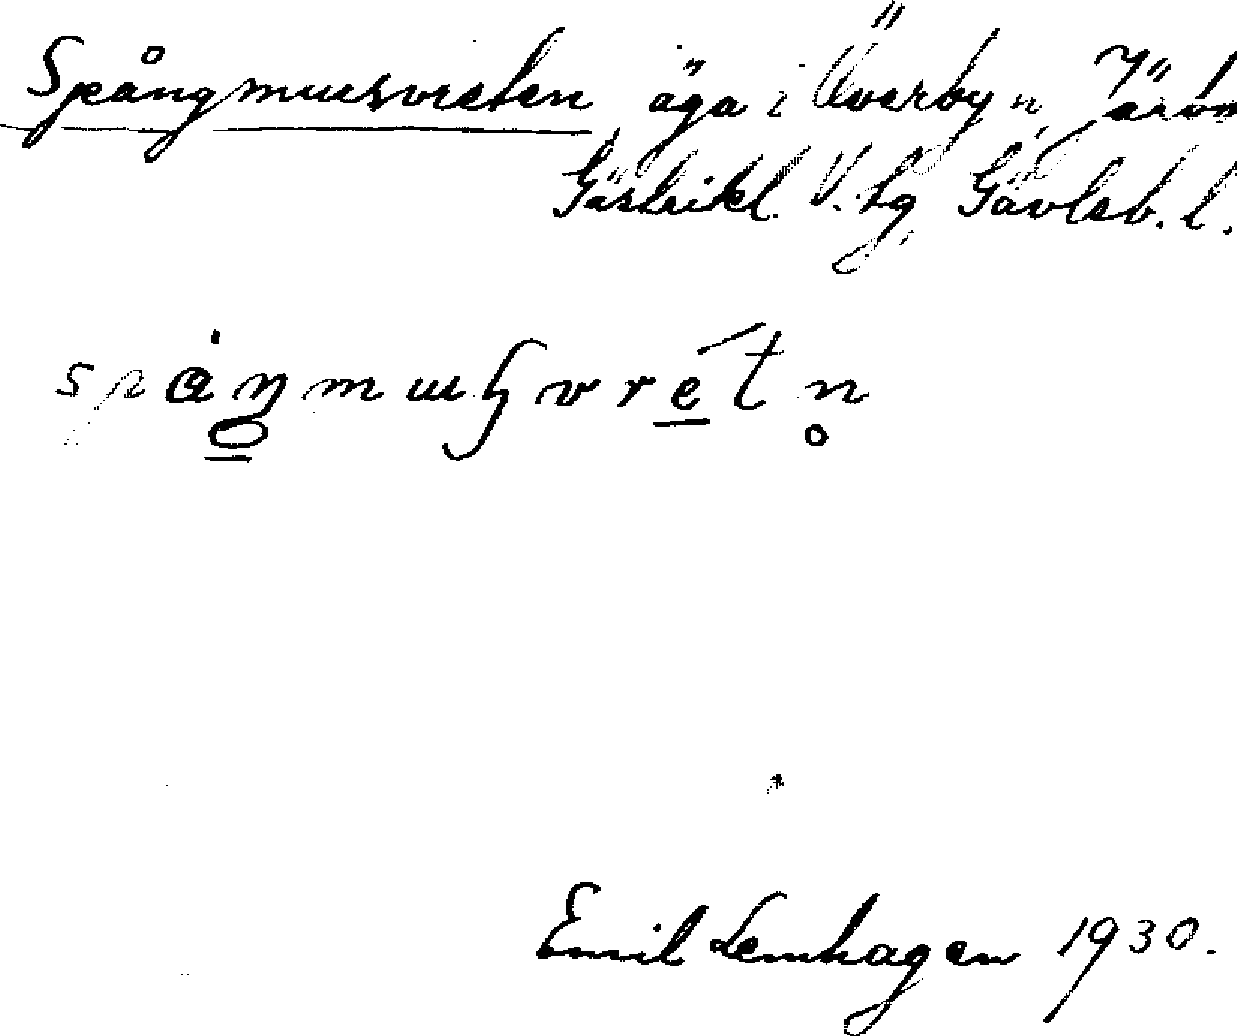 Spångmursvreten äga i Överbyn, Järbo
Gästrikl. V. tg, Gävleb. l.
Emil Lemhagen 1930.